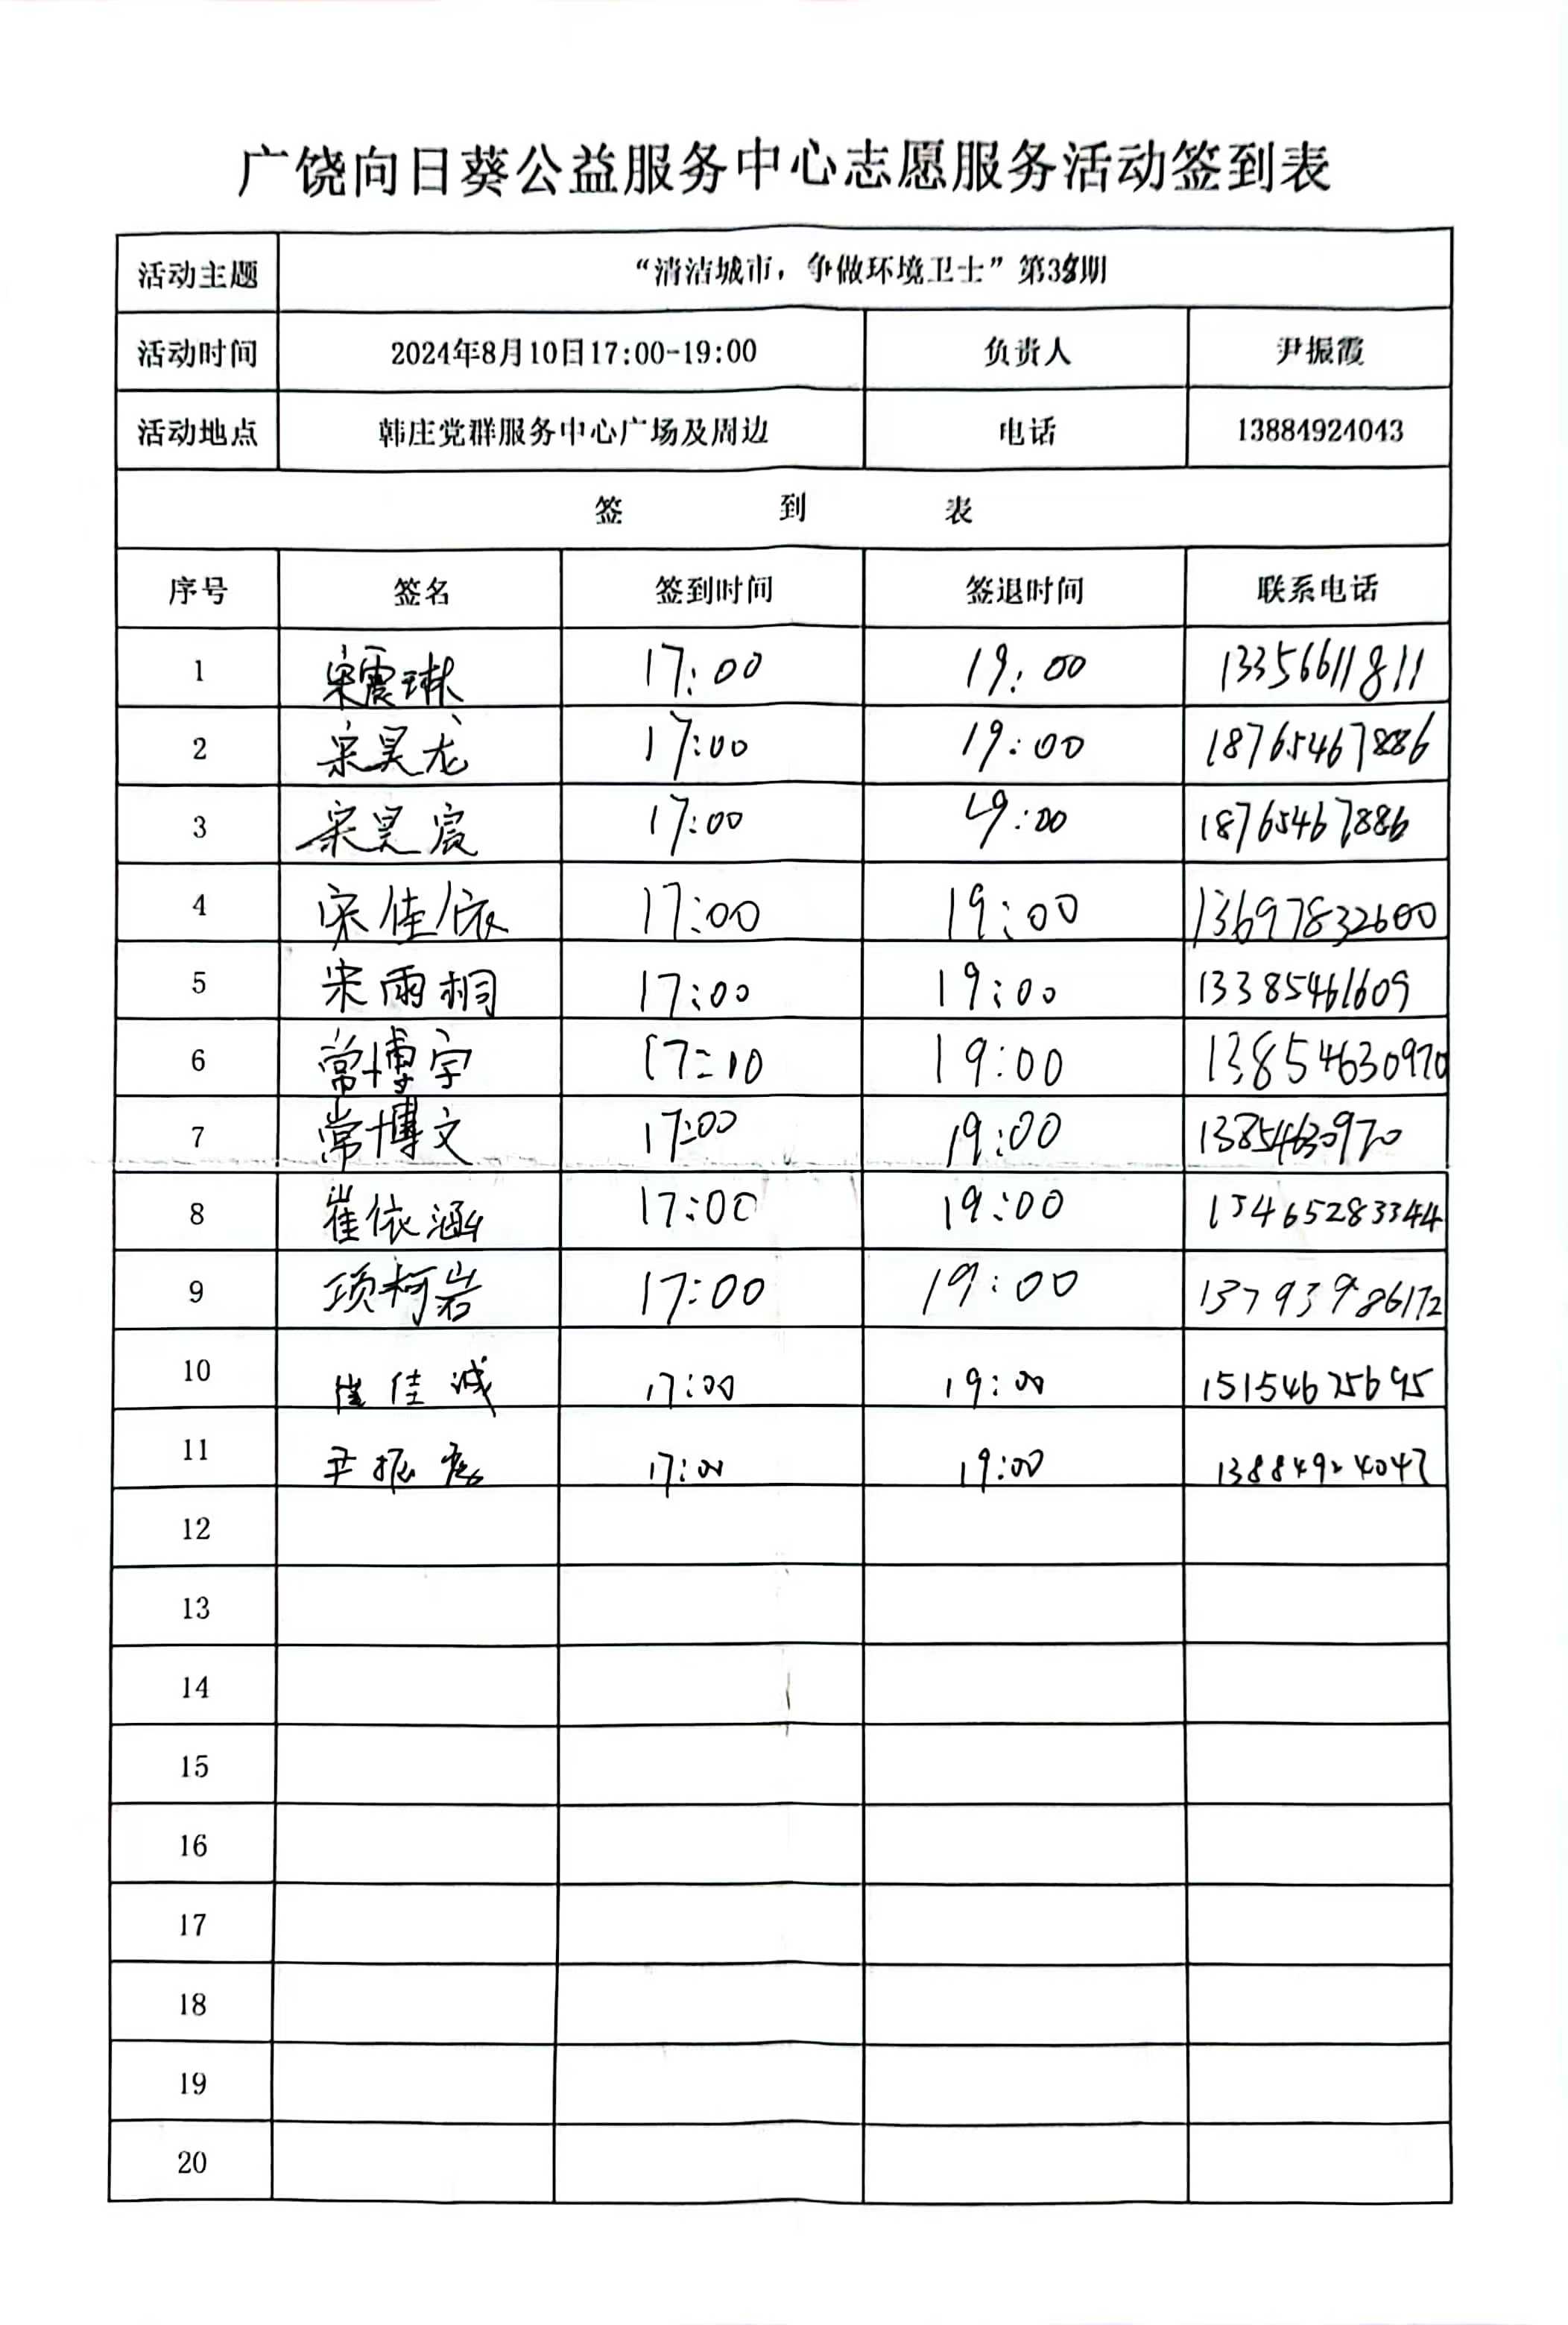 广饶向日葵公益服务中心志愿服务活动签到表
活动主题 “清洁城市，争做环境卫士”第38期
活动时间 2024年8月10日17:00-19:00 负责人 尹振霞
活动地点 韩庄党群服务中心广场及周边 电话 13884924043
签 到 表
序号 签名 签到时间 签退时间 联系电话
1 宋震琳 17:00 19:00 13356611811
2 宋昊龙 17:00 19:00 18765467886
3 宋昊宸 17:00 19:00 18765467886
4 宋佳依 17:00 19:00 13697832600
5 宋雨桐 17:00 19:00 13385461609
6 常博宇 17:10 19:00 13854630970
7 常博文 17:00 19:00 1385463970
8 崔依涵 17:00 19:00 15465283344
9 项柯岩 17:00 19:00 13793986172
10 崔佳诚 17:00 19:00 15154675695
11 尹振霞 17:00 19:00
12
13
14
15
16
17
18
19
20